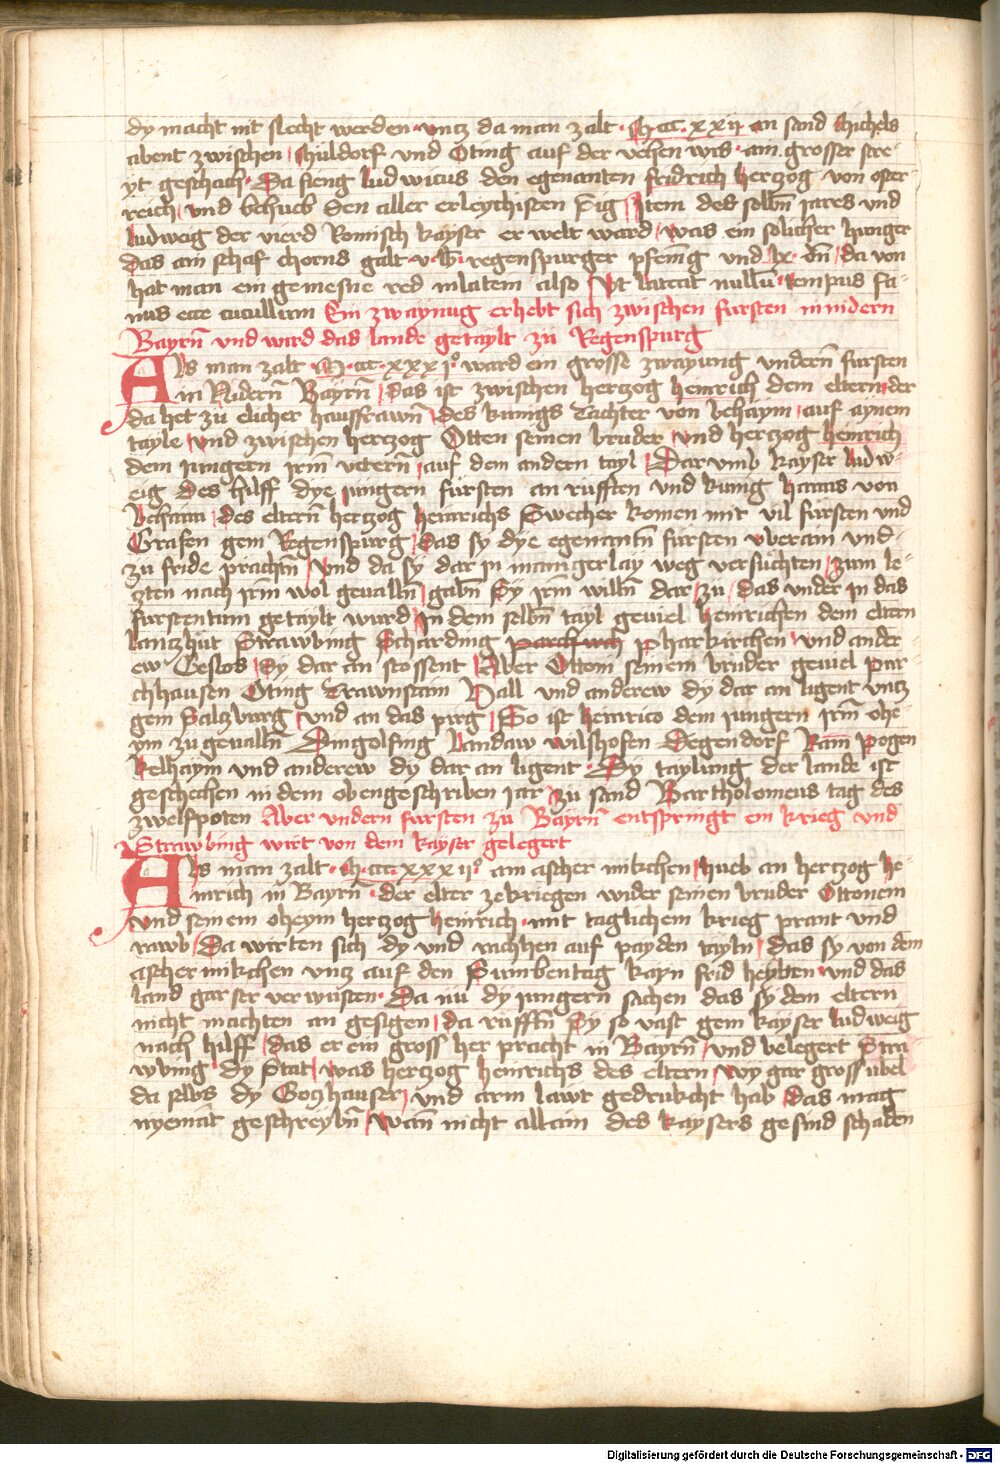 dy macht nit slecht werden · untz da man zalt · M · ccc · xxii an sand Michels
abent zwischen Muldorf vnd Oting auf der vehen wis · ain grosser stre-
yt geschach · Da fieng ludwicus den egenanten fridrich hertzog von oster
reich vnd behueb den aller erleychisten Sig Item des selbñ iares vnd
ludweig der vierd Romisch kayser er welt ward was ein solicher hunger
das ain schaf chorns galt · v · lb · regenspurger pfening vnd lx · dñ da von
hat man ein gemesne red in latein also Vt lateat nullū tempus fa-
mis ecce cucullum Ein zwaynug erhebt sich zwischen fursten in nidern
Bayrñ vnd wird das lande getaylt zu Regenspurg
Als man zalt · M · ccc · xxxi° ward ein grosse zwayung vndern̄ fursten
in Nidern̄ Bayrñ das ist zwischen hertzog heinrich dem eltern der
da het zu elicher hausfrawñ des kunigs Tachter von behaym auf aynem
tayle vnd zwischen hertzog Otten seinen bruder vnd hertzog heinrich
dem iungern irm̄ vetern̄ auf dem andern tayl Dar vmb kayser ludw-
eig des hilff dye iungern fursten an rüfften vnd kunig hanns von
behaim des eltern̄ hertzog heinrichs Swecher komen mit vil fursten vnd
Grafen gem Regenspurg das sy dye egenantñ fursten vberain vnd
zu fride prachtñ vnd da sy dar in maingerlay weg versuchten zum le-
zten nach irm̄ wol geuallñ gabñ Sy irm̄ willñ dar zu das vnder in das
furstentum getaylt wurd in dem selbñ tayl geuiel heinrichen dem eltern
lantzhut Strawbing Scharding pharkirchen vnd ander
ew Geslos dy dar an stossent Aber Ottoni seinem bruder geuiel pur
chhausen Oting Trawnstain Hall vnd anderew dy dar an ligent vntz
gem Saltzburg vnd an das pirg So ist heinrico dem iungern irm̄ ohe
ym zu geuallñ Dingolfing landaw vilshofen Degendorf kam̄ pogen
kelhaym vnd anderew dy dar an ligent · Dy taylung der lande ist
geschechen in dem obengeschriben iar zu sand Bartholomeus tag des
zwelfpoten Aber vndern fursten zu Bayrñ entspringt ein krieg vnd
Strawbing wirt von dem kayser gelegert
Als man zalt · M · ccc · xxxii° am ascher mikchen hueb an hertzog he-
inrich in Bayrñ der elter ze kriegen wider seinen bruder Ottonem
vnd seinem oheym hertzog heinrich · mit taglichem krieg prant vnd
rawb Da werten sich dy vnd rachhen auf payden tayln das sy von dem
aschermikchen vntz auf den Sumbentag kayn frid heyten vnd das
land gar ser ver wüsten · Da nu dy iungern̄ sachen das sy dem eltern
nicht machten an gesigen da rüfftñ Sy so vast gem kayser ludweig
nach hilff das er ein gross her pracht in Bayrñ vnd belegert Stra
wbing dy Stat was hertzog heinrichs des eltern wy gar gross übel
da selbs dy Gotzhauser vnd arm lawt gedrukcht hab das mag
nyemāt geschreybñ Wañ nicht allain des kaysers gesind schaden